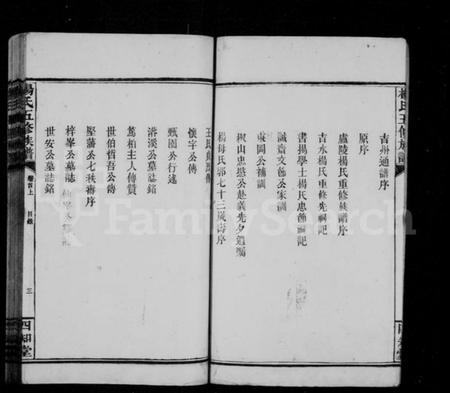 楊氏五修族譜
吉州通譜序
原序
廬陵楊氏重修族譜序
吉水楊氏重修先祠記
書楊學士楊氏忠節祠記
誠齋文節公家訓
東園公補訓
楊母氏郭七十三歲壽序
懷字公傳
甄園公行述
浴溪公墓誌銘
篤柏主人傳贊
世伯哲吾公傳
堅藩公七秩壽序
梓峯公墓誌
世安公墓誌銘
楊氏五修族譜
卷首上
目錄
三
四知堂
FamilySearch